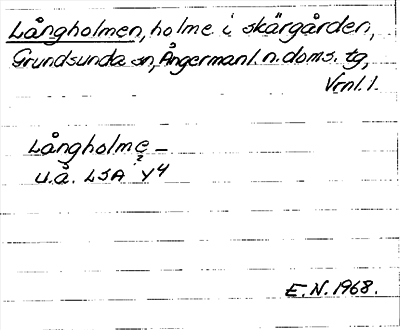 Långholmen, holme i skärgården,
Grundsunda sn, Ångermanl. n. doms. tg,
Vrnl. l.
Långholme –
u.å. LSA Y4
E.N. 1968.